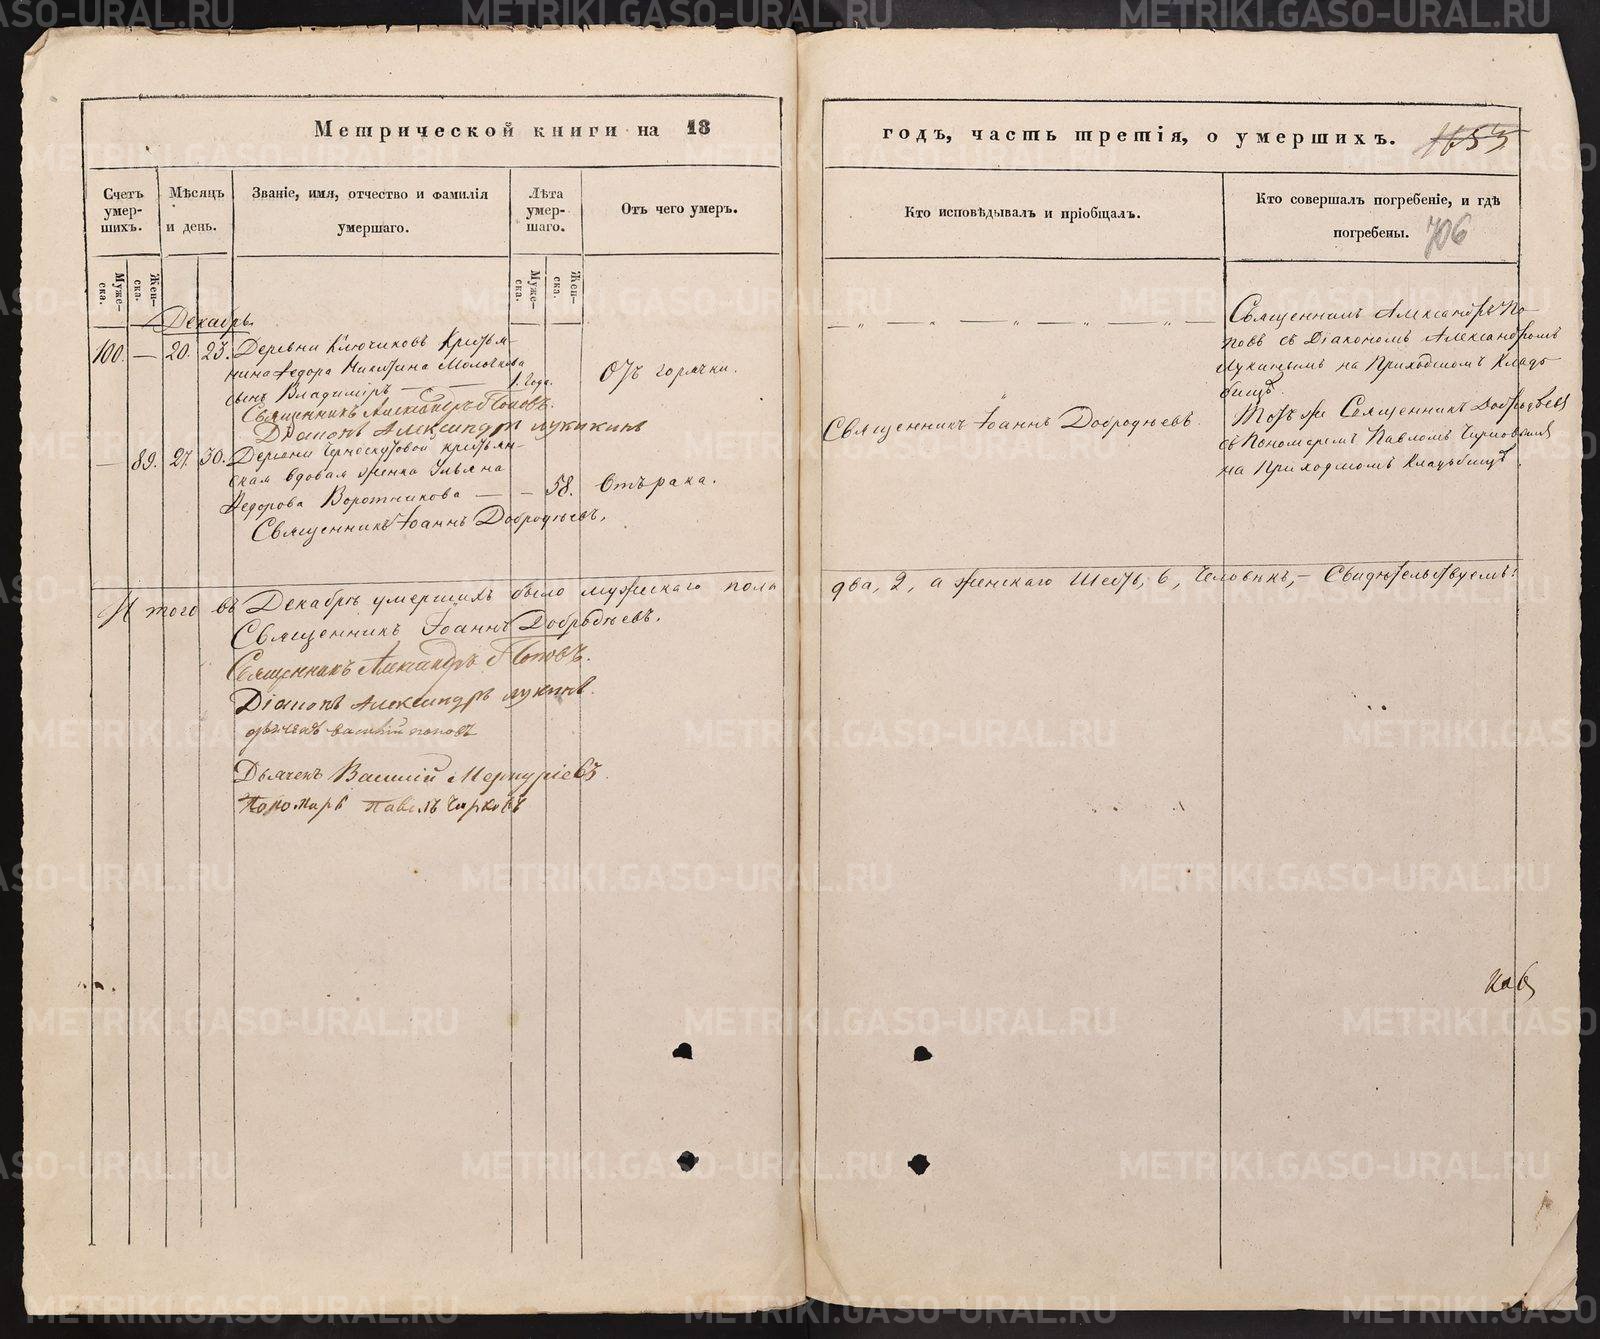 Метрической книги на 18
годъ, часть третія, о умершихъ. 1653
Счетъ умер-шихъ.
Мѣсяцъ и день.
Званіе, имя, отчество и фамилія умершаго.
Лѣта умер-шаго.
Отъ чего умеръ.
Кто исповѣдывалъ и пріобщалъ.
Кто совершалъ погребеніе, и гдѣ погребены. 706
Муже-ска. Жен-ска.
Муже-ска. Жен-ска.
Декабрь.
100. — 20. 23. Деревни Ключиковъ Крестья-
нина Федора Никитина Молочкова
сынъ Владиміръ — — 1. Года. Отъ горячки.
Священникъ Александръ Поповъ.
Діаконъ Александръ Лукинъ
— 89. 27. 30. Деревни Черноскутовой крестьян-
ская вдовая женка Ульяна
Федорова Воротникова — — 58. Отъ рака.
Священникъ Іоаннъ Добродѣевъ.
Священникъ Іоаннъ Добродѣевъ.
Священникъ Александръ По-
повъ съ Діакономъ Александромъ
Лукинымъ на Приходскомъ Кладъ-
бищѣ.
Тотъ же Священникъ Добродѣевъ
съ Пономаремъ Павломъ Чирковымъ
на Приходскомъ Кладьбищѣ.
И того въ Декабрѣ умершихъ было мужескаго пола два, 2, а женскаго шесть, 6, Человѣкъ, — Свидѣтельствуемъ:
Священникъ Іоаннъ Добродѣевъ.
Священникъ Александръ Поповъ.
Діаконъ Александръ Лукинъ.
дьячекъ Василій Поповъ
Дьячекъ Василій Меркуріевъ.
Пономарь Павелъ Чирковъ
METRIKI.GASO-URAL.RU